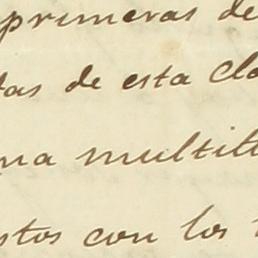 primeras de
tas de esta cla
na multit
stos con los